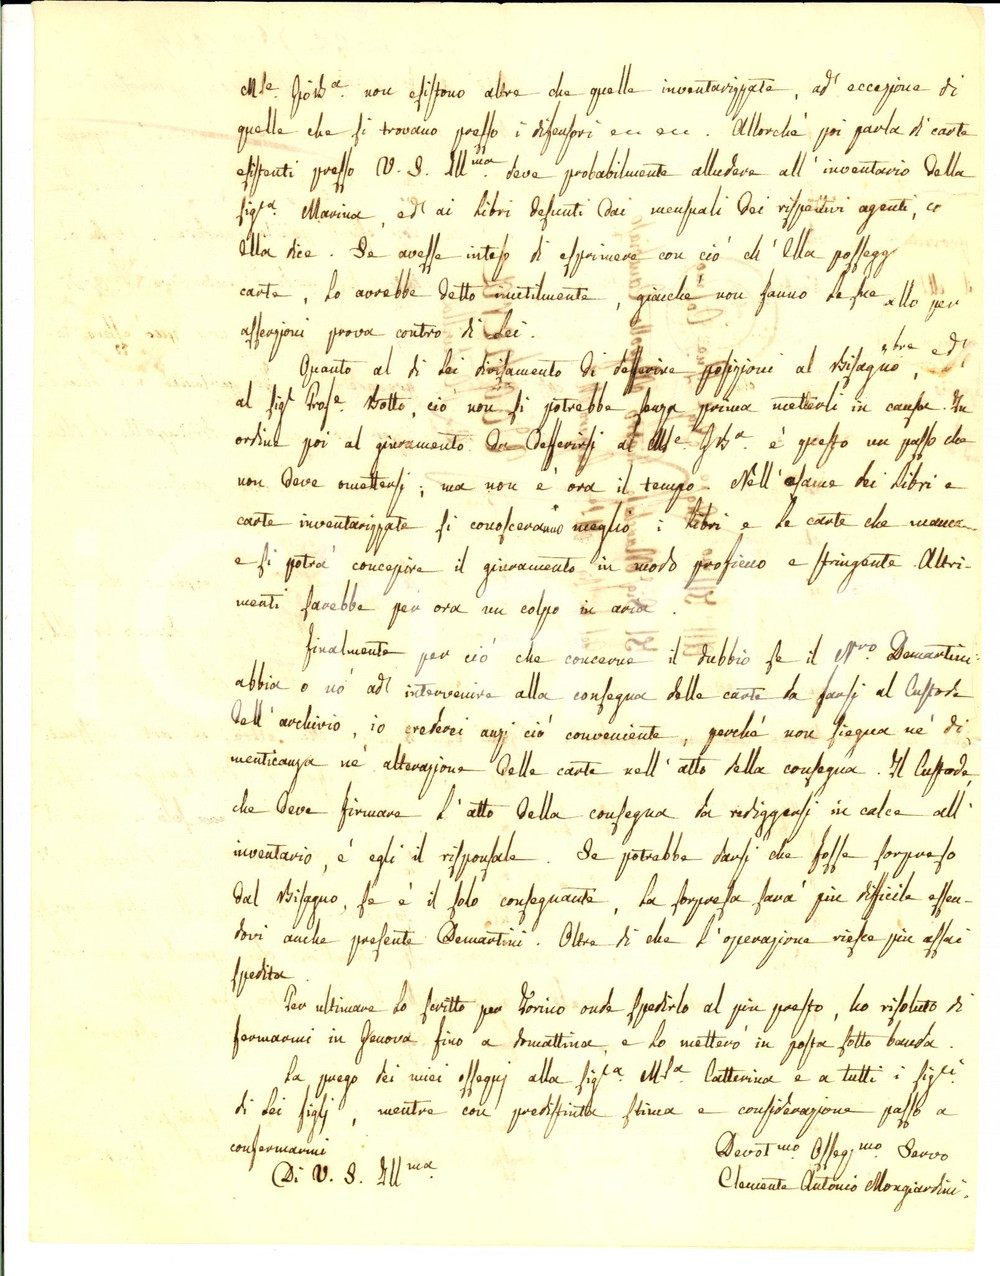 M.se Gio B.a non esistono altre che quelle inventarizzate, ad eccezione di
quelle che si trovano presso i difensori ec: ec: . Allorché poi parla di carte
esistenti presso V. S. Ill.ma deve probabilmente alludere all' inventario della
sig.ra Marina, ed ai Libri desunti dai mensuali dei rispettivi agenti, c
Ella dice. Se avesse inteso di esprimere con ciò ch' Ella possegg
carte, Lo avrebbe detto inutilmente, giacché non fanno Le sue allo per
asserzioni prova contro di Lei.
Quanto al di Lei divisamento di defferire posizioni al Bisagno, ed
al sig.r Prof.e Botto, ciò non si potrebbe senza prima metterli in causa. In
ordine poi al giuramento da defferirsi al M.se G.B.a è questo un passo che
non deve omettersi; ma non è ora il tempo. Nell' esame dei Libri e
carte inventarizzate si conosceranno meglio i Libri e Le carte che manca-
e si potrà concepire il giuramento in modo proficuo e stringente. Altri-
menti sarebbe per ora un colpo in aria.
Finalmente per ciò che concerne il dubbio se il N.ro Demartini
abbia o nò ad intervenire alla consegna delle carte da farsi al Custode
dell' archivio, io crederei anzi ciò conveniente, perché non siegua né di-
menticanza né alterazione delle carte nell' atto della consegna. Il Custode,
che deve firmare L' atto della consegna da rediggersi in calce all'
inventario, è egli il risponsale. Se potrebbe darsi che fosse sorpreso
dal Bisagno, se è il solo consegnante, La sorpresa sarà più difficile essen-
dovi anche presente Demartini. Oltre di che L' operazione riesce più assai
spedita.
Per ultimare Lo scritto per Torino onde spedirlo al più presto, ho risoluto di
fermarmi in Genova fino a domattina, e Lo metterò in posta sotto banda.
La prego dei miei ossequj alla sig.ra M.sa Catterina e a tutti i sig.ri
di Lei figlj, mentre con predistinta stima e considerazione passo a
confermarmi
Di V. S. Ill.ma
Devot.mo Osseq.mo Servo
Clemente Antonio Mongiardini.